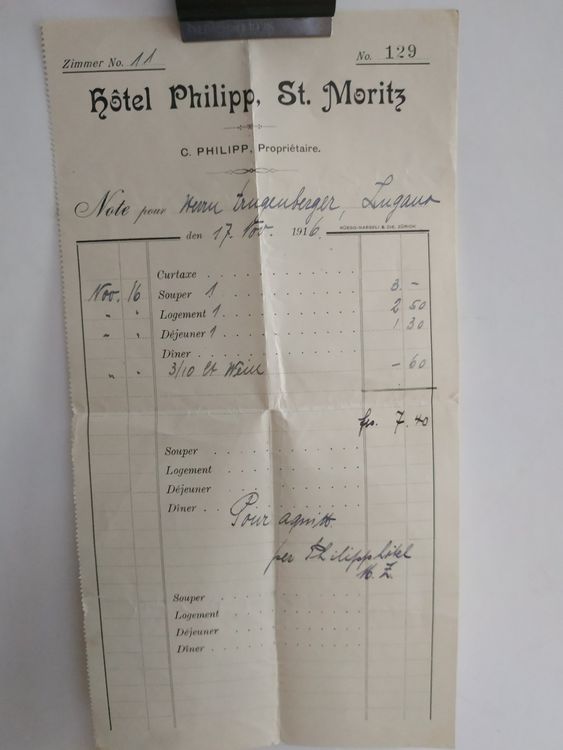 Zimmer No. 11
No. 129
Hôtel Philipp, St. Moritz
C. PHILIPP, Propriétaire.
Note pour Herrn Engenberger, Lugano
den 17. Nov. 1916.
RÜEGG-NAEGELI & CIE. ZÜRICH
Curtaxe
Nov. 16 Souper 1 3. -
" " Logement 1 2 50
" " Déjeuner 1 1 30
Dîner
" " 3/10 Lt Wein - 60
frs. 7.40
Souper
Logement
Déjeuner
Dîner
Pour acquitt
per Philipphôtel
Souper
Logement
Déjeuner
Dîner